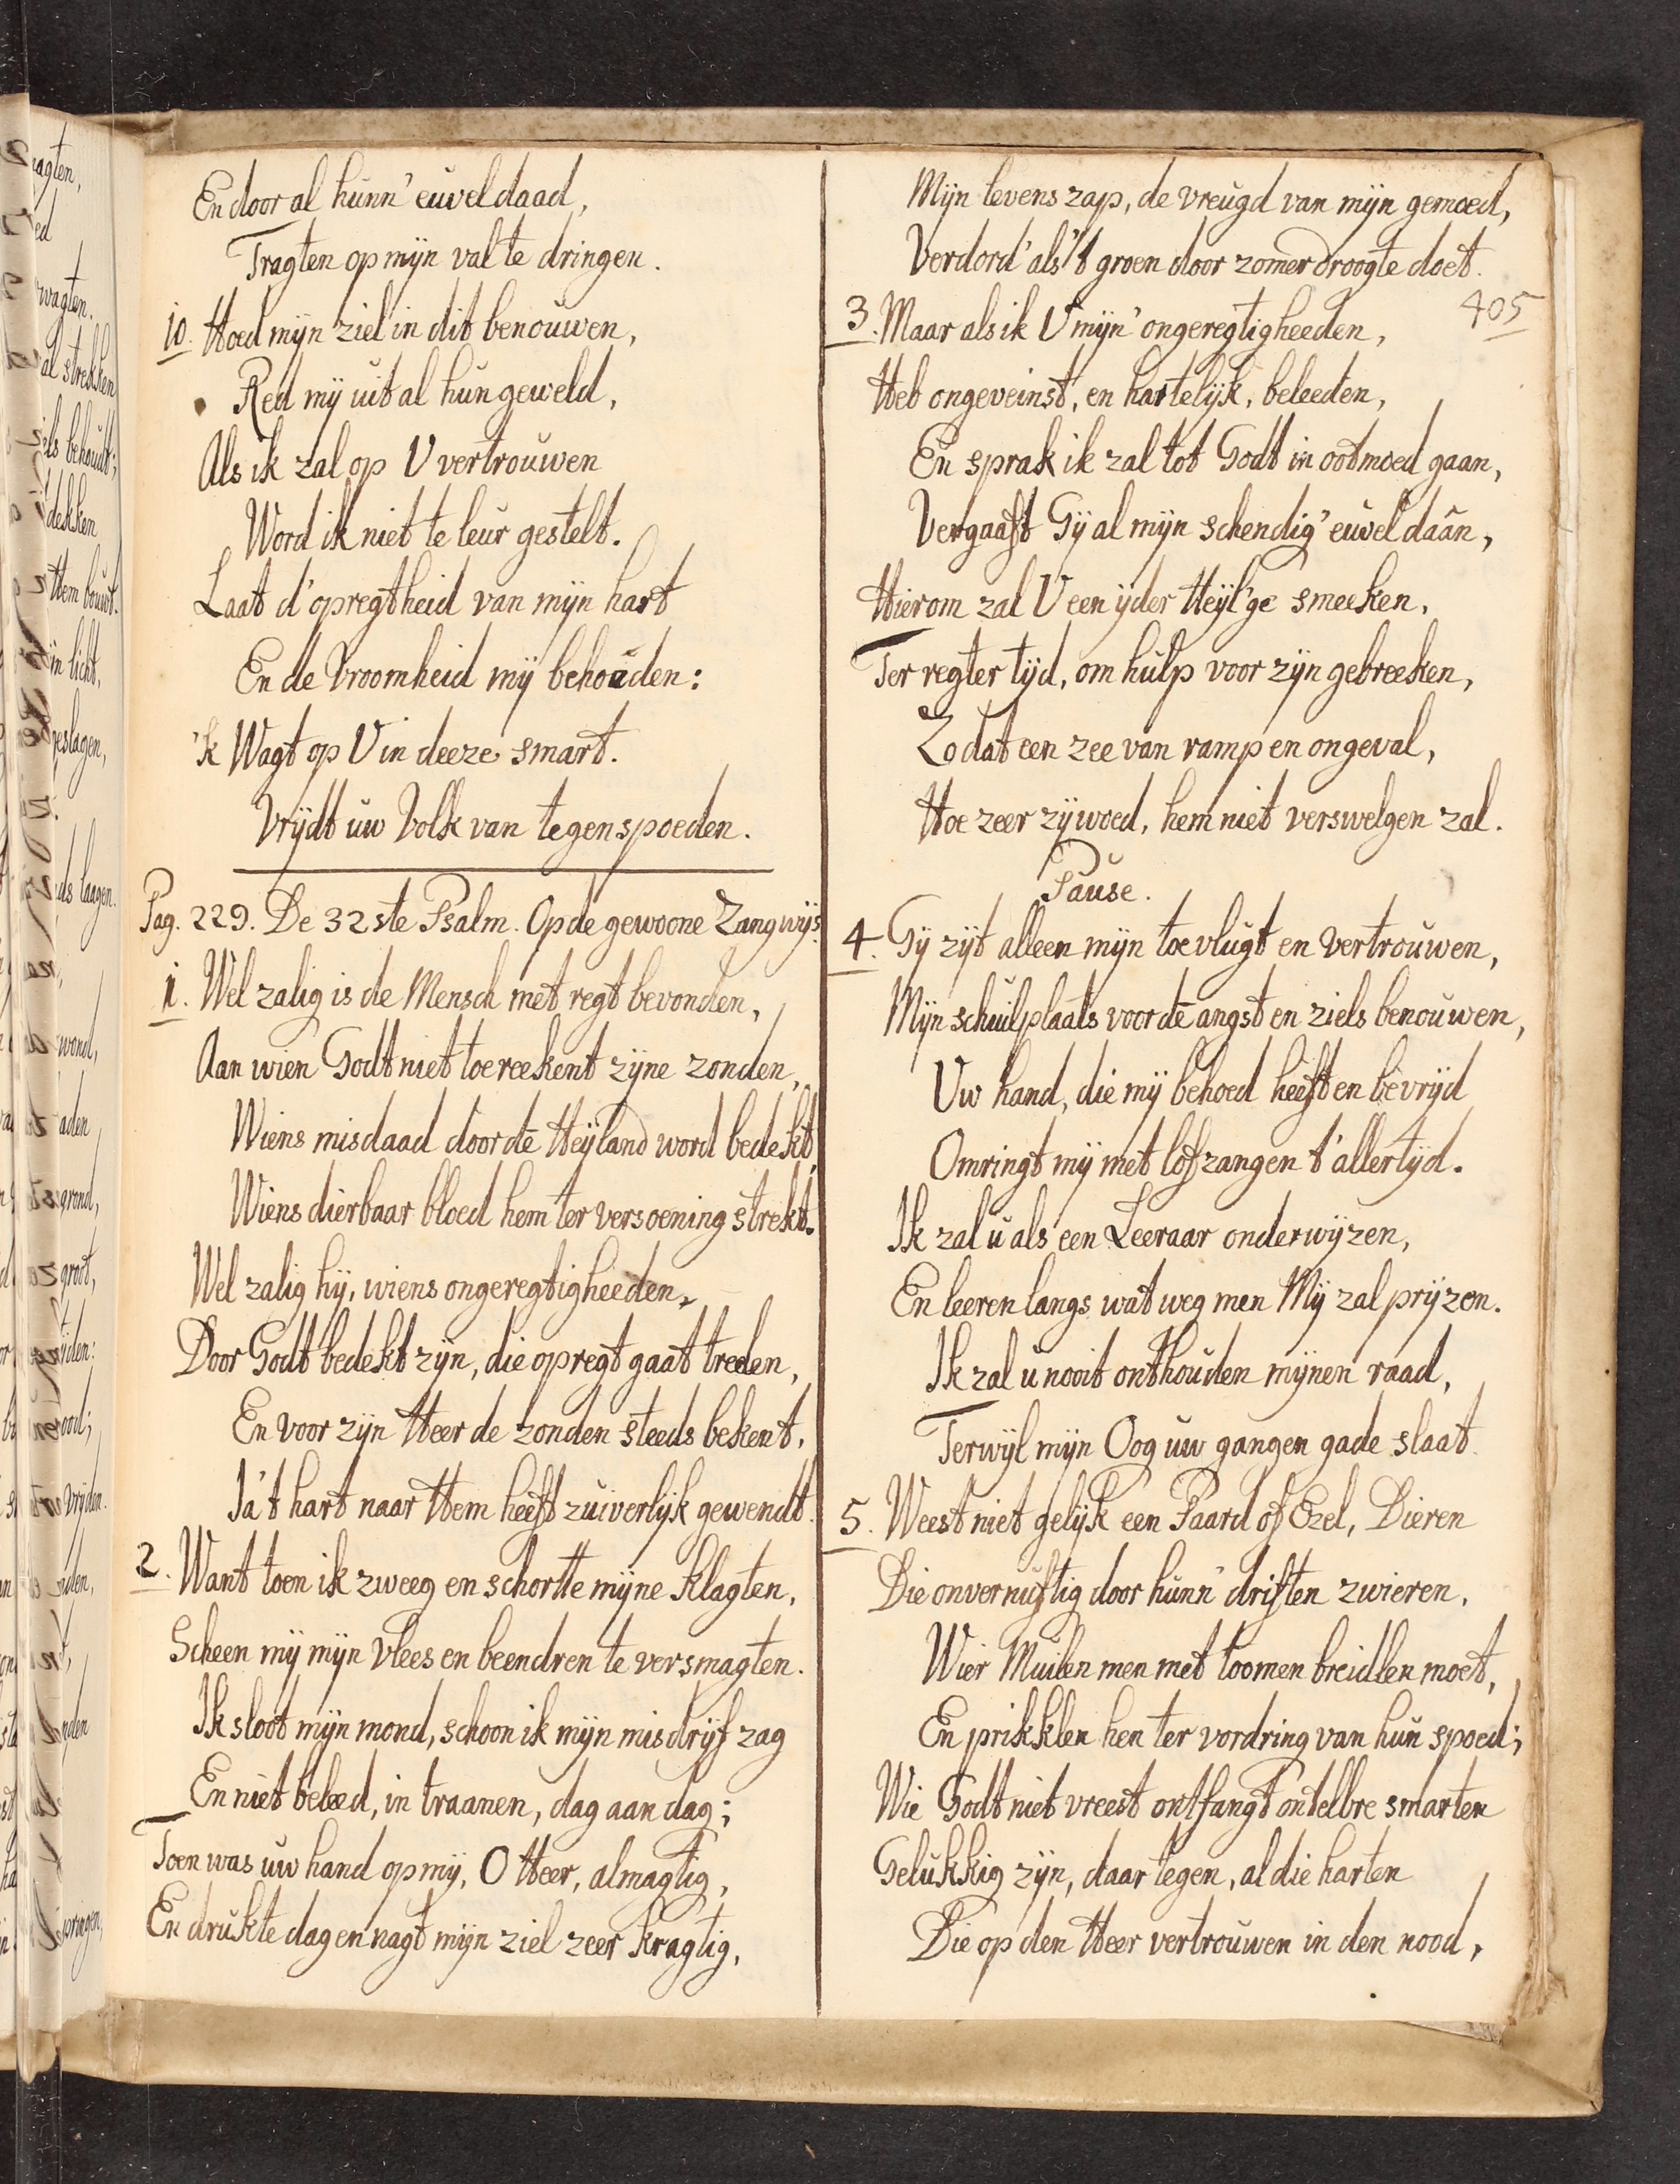 En door al hunn' euveldaad,
Tragten op mijn val te dringen.
10. Hoed mijn ziel in dit benouwen,
Red mij uit al hun geweld,
Als ik zal op U vertrouwen
Word ik niet te leur gestelt.
Laat d'opregtheid van mijn hart
En de Vroomheid mij behoûden:
'k Wagt op U in deeze smart.
Vrijdt uw Volk van tegenspoeden.
Pag. 229. De 32ste Psalm. Op de gewoone Zangwijs.
1. Wel zalig is de Mensch met regt bevonden,
Aan wien Godt niet toereekent zijne zonden,
Wiens misdaad door de Heijland word bedekt,
Wiens dierbaar bloed hem ter versoening strekt.
Wel zalig hij, wiens ongeregtigheeden,
Door Godt bedekt zijn, die opregt gaat treden,
En voor zijn Heer de zonden steeds bekent,
Ja't hart naar Hem heeft zuiverlijk gewendt.
2. Want toen ik zweeg en schortte mijne klagten,
Scheen mij mijn vlees en beendren te versmagten.
Ik sloot mijn mond, schoon ik mijn misdrijf zag
En niet beleed, in traanen, dag aan dag;
Toen was uw hand op mij, O Heer, almagtig,
En drukte dag en nagt mijn ziel zeer kragtig,
Mijn levens zap, de vreugd van mijn gemoed,
Verdord' als 't groen door zomer droogte doet.
405
3. Maar als ik U mijn' ongeregtigheeden,
Heb ongeveinst, en hartelijk, beleeden,
En sprak ik zal tot Godt in ootmoed gaan,
Vergaaft Gij al mijn schendig' euvel daân,
Hierom zal U een ijder Heijl'ge smeeken,
Ter regter tijd, om hulp voor zijn gebreeken,
Zo dat een zee van ramp en ongeval,
Hoe zeer zij woed, hem niet verswelgen zal.
Pause.
4. Gij zijt alleen mijn toevlugt en vertrouwen,
Mijn schuilplaats voor de angst en ziels benouwen,
Uw hand, die mij behoed heeft en bevrijd
Omringt mij met lofzangen t'allertijd.
Ik zal u als een Leeraar onderwijzen,
En leeren langs wat weg men Mij zal prijzen.
Ik zal u nooit onthouden mijnen raad,
Terwijl mijn Oog uw gangen gade slaat.
5. Weest niet gelijk een Paard of Ezel, Dieren
Die onvernuftig door hunn' driften zwieren,
Wier Muilen men met toomen breidlen moet,
En prikklen hen ter vordring van hun spoed;
Wie Godt niet vreest ontfangt ontelbre smarten
Gelukkig zijn, daar tegen, al die harten
Die op den Heer vertrouwen in den nood,